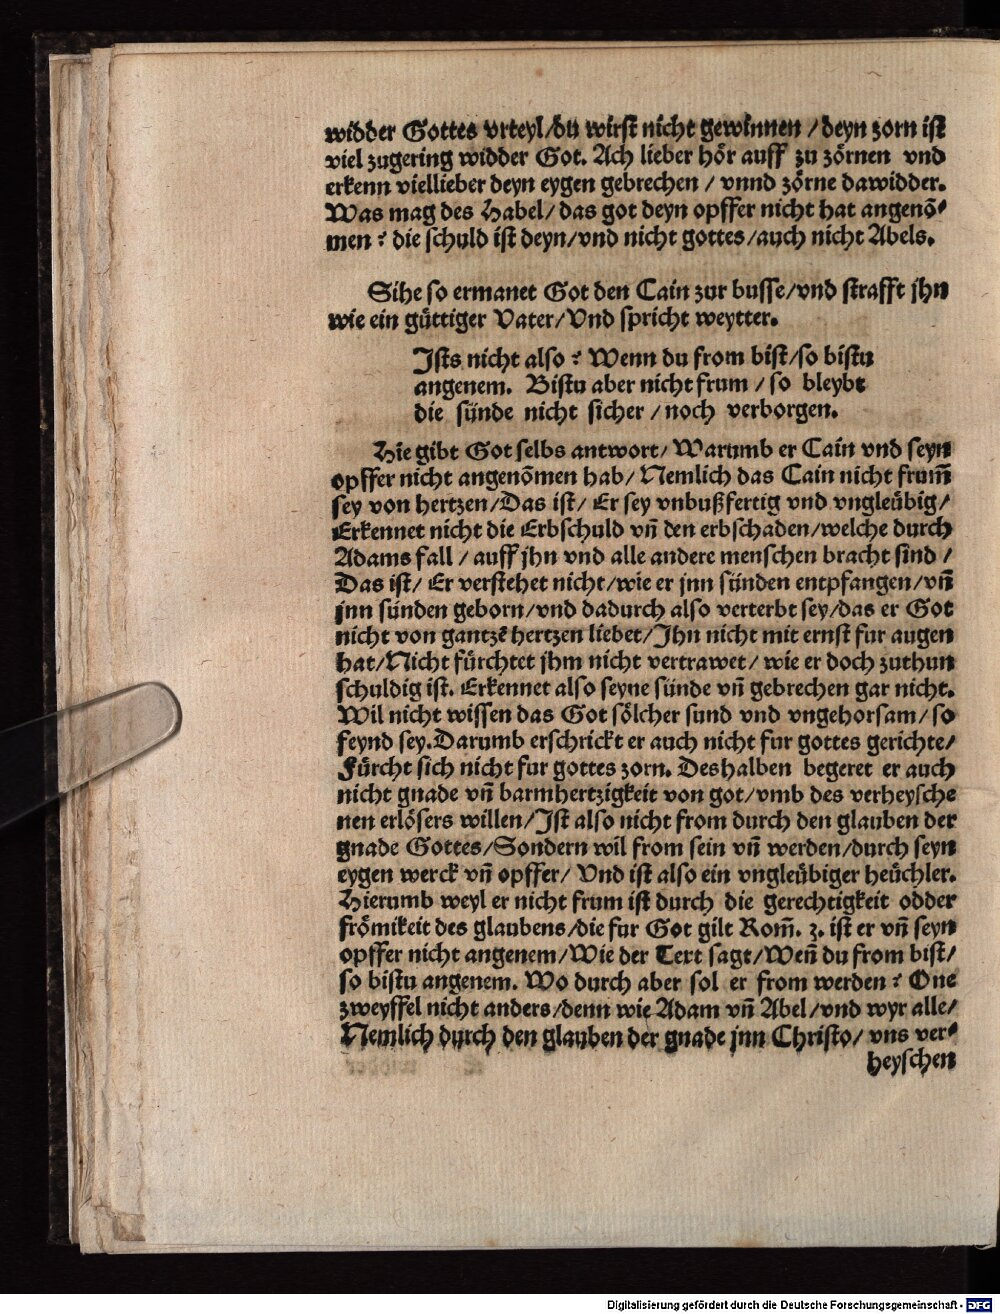 widder Gottes vrteyl/du wirst nicht gewinnen /deyn zorn ist
viel zugering widder Got. Ach lieber hör auff zu zörnen vnd
erkenn viellieber deyn eygen gebrechen / vnnd zörne dawidder.
Was mag des Habel/das got deyn opffer nicht hat angenō⸗
men? die schuld ist deyn/vnd nicht gottes/auch nicht Abels.
Sihe so ermanet Got den Cain zur busse/vnd strafft jhn
wie ein güttiger Vater/Vnd spricht weytter.
Ists nicht also? Wenn du from bist/so bistu
angenem. Bistu aber nicht frum / so bleybt
die sünde nicht sicher /noch verborgen.
Hie gibt Got selbs antwort/ Warumb er Cain vnd seyn
opffer nicht angenōmen hab/ Nemlich das Cain nicht frum̄
sey von hertzen/Das ist/ Er sey vnbußfertig vnd vngleübig/
Erkennet nicht die Erbschuld vn̄ den erbschaden/welche durch
Adams fall / auff jhn vnd alle andere menschen bracht sind /
Das ist/ Er verstehet nicht/wie er jnn sünden entpfangen/vn̄
jnn sünden geborn/vnd dadurch also verterbt sey/das er Got
nicht von gantzē hertzen liebet/Jhn nicht mit ernst fur augen
hat/Nicht fürchtet jhm nicht vertrawet/ wie er doch zuthun
schuldig ist. Erkennet also seyne sünde vn̄ gebrechen gar nicht.
Wil nicht wissen das Got sölcher sund vnd vngehorsam/ so
feynd sey.Darumb erschrickt er auch nicht fur gottes gerichte/
Fürcht sich nicht fur gottes zorn. Deshalben begeret er auch
nicht gnade vn̄ barmhertzigkeit von got/vmb des verheysche
nen erlösers willen/Ist also nicht from durch den glauben der
gnade Gottes/Sondern wil from sein vn̄ werden/durch seyn
eygen werck vn̄ opffer/ Vnd ist also ein vngleübiger heüchler.
Hierumb weyl er nicht frum ist durch die gerechtigkeit odder
frömikeit des glaubens/die fur Got gilt Rom̄. 3. ist er vn̄ seyn
opffer nicht angenem/Wie der Text sagt/Wen̄ du from bist/
so bistu angenem. Wo durch aber sol er from werden? One
zweyffel nicht anders/denn wie Adam vn̄ Abel/vnd wyr alle/
Nemlich durch den glauben der gnade jnn Christo/ vns ver⸗
heyschen
Digitalisierung gefördert durch die Deutsche Forschungsgemeinschaft - DFG